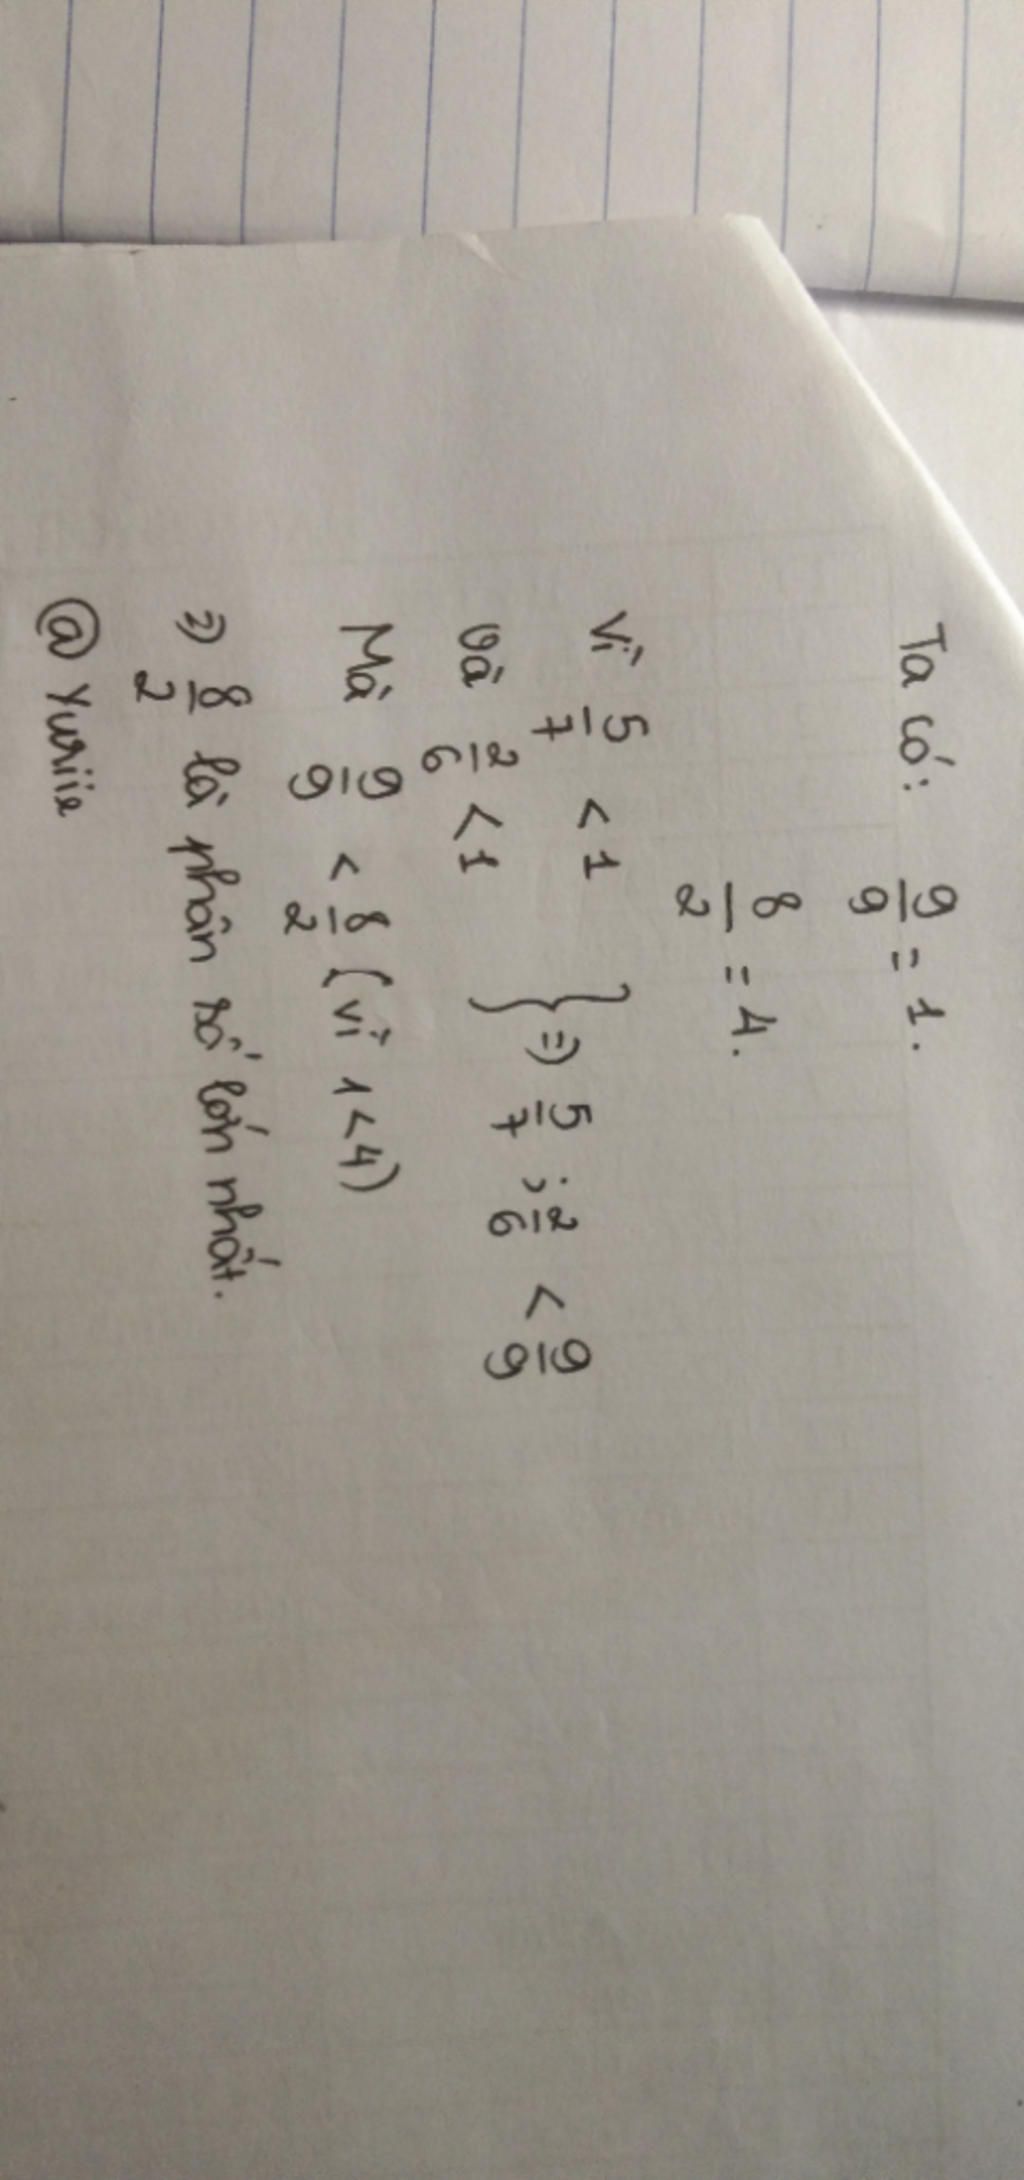 Ta có: 9/9 = 1.
8/2 = 4.
Vì 5/7 < 1
Và 2/6 < 1 } => 5/7 ; 2/6 < 9/9
Mà 9/9 < 8/2 (vì 1 < 4)
=> 8/2 là phân số lớn nhất.
@ Yuriie